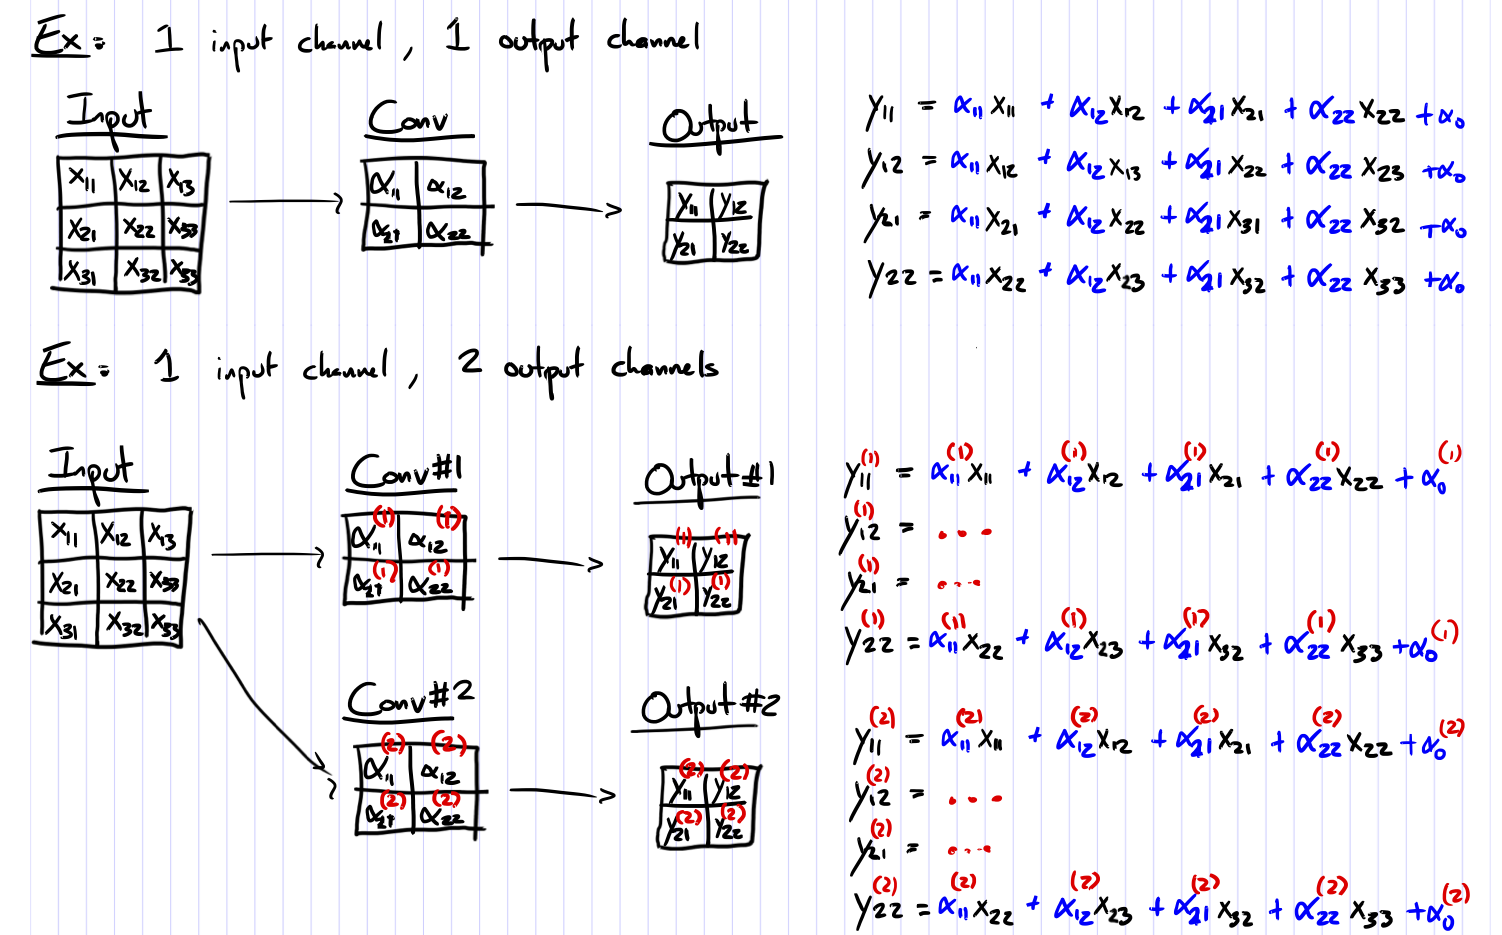 Ex: 1 input channel, 1 output channel
Input
x11 x12 x13
x21 x22 x33
x31 x32 x33
Conv
α11 α12
α21 α22
Output
y11 y12
y21 y22
y11 = α11 x11 + α12 x12 + α21 x21 + α22 x22 + α0
y12 = α11 x12 + α12 x13 + α21 x22 + α22 x23 + α0
y21 = α11 x21 + α12 x22 + α21 x31 + α22 x32 + α0
y22 = α11 x22 + α12 x23 + α21 x32 + α22 x33 + α0
Ex: 1 input channel, 2 output channels
Input
x11 x12 x13
x21 x22 x33
x31 x32 x33
Conv #1
α11(1) α12(1)
α21(1) α22(1)
Output #1
y11(1) y12(1)
y21(1) y22(1)
y11(1) = α11(1) x11 + α12(1) x12 + α21(1) x21 + α22(1) x22 + α0(1)
y12(1) = ...
y21(1) = ...
y22(1) = α11(1) x22 + α12(1) x23 + α21(1) x32 + α22(1) x33 + α0(1)
Conv #2
α11(2) α12(2)
α21(2) α22(2)
Output #2
y11(2) y12(2)
y21(2) y22(2)
y11(2) = α11(2) x11 + α12(2) x12 + α21(2) x21 + α22(2) x22 + α0(2)
y12(2) = ...
y21(2) = ...
y22(2) = α11(2) x22 + α12(2) x23 + α21(2) x32 + α22(2) x33 + α0(2)